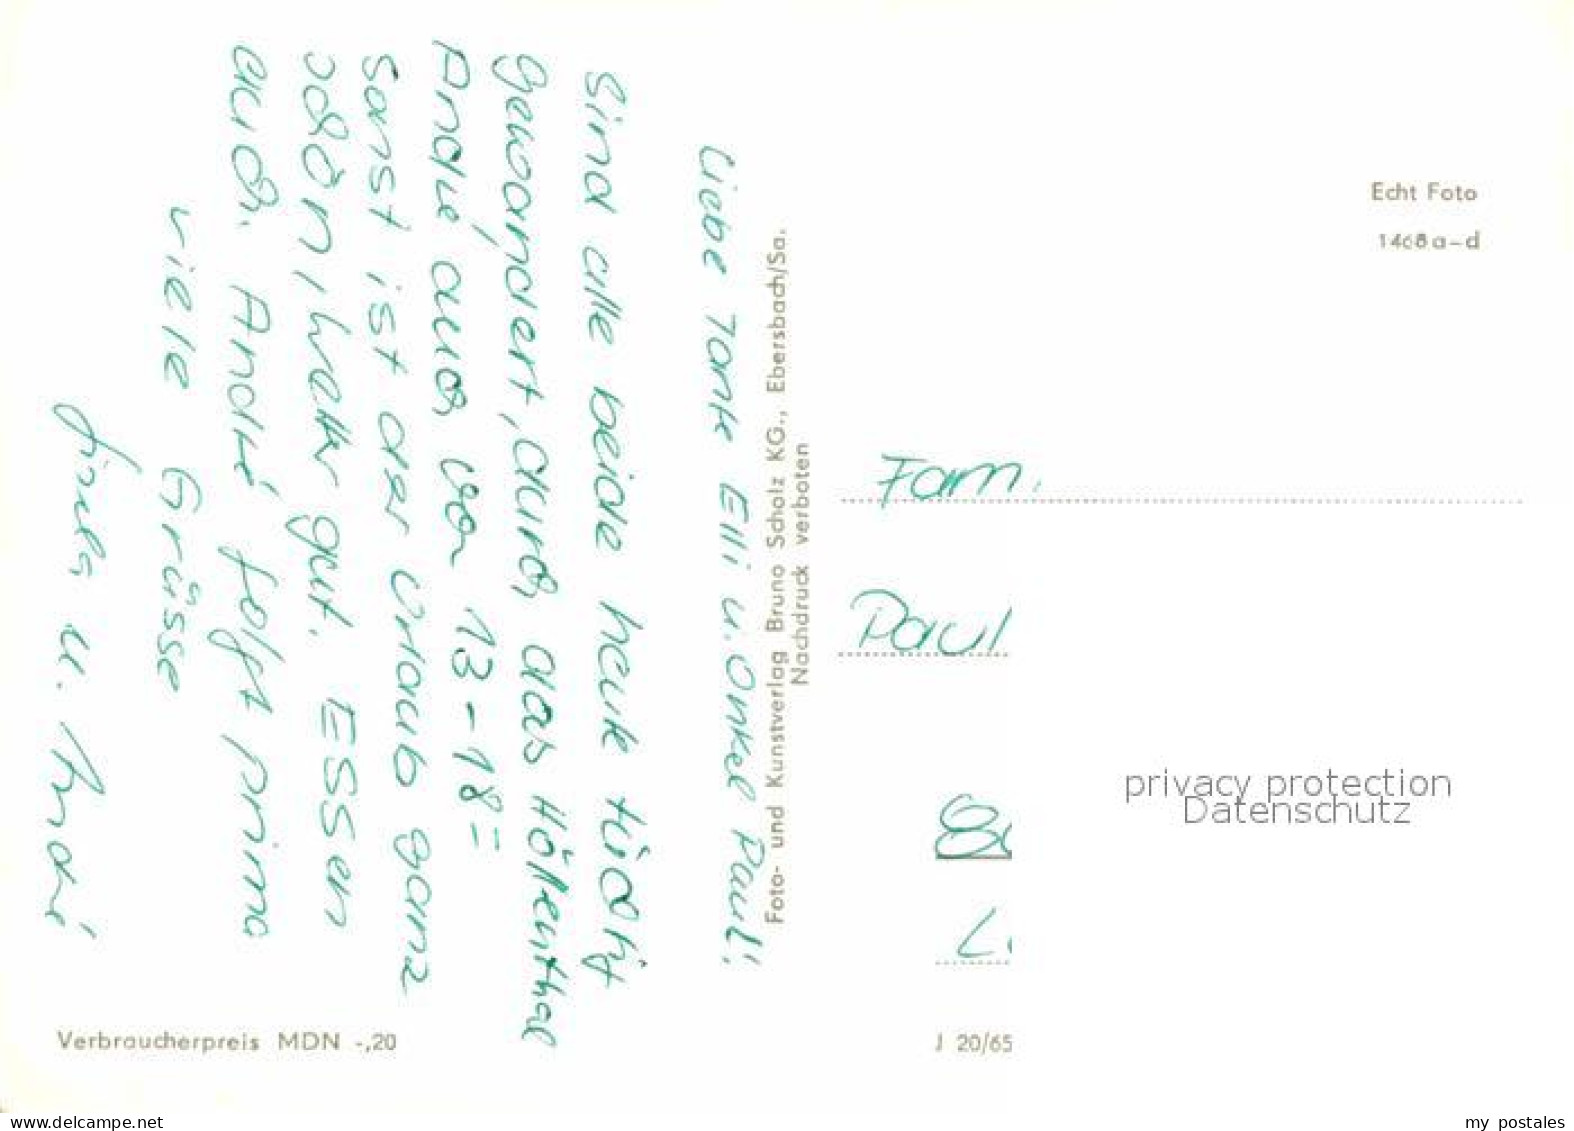 Liebe Tante Elli u. Onkel Paul!
Sind alle beide heute tüchtig
gewandert, durch das Höllenthal
André auch von 13-18=
Sonst ist der Urlaub ganz
schön, Wetter gut. Essen
auch. André folgt prima
viele Grüsse
u. André
Foto- und Kunstverlag Bruno Scholz KG., Ebersbach/Sa.
Nachdruck verboten
Echt Foto
1468 a-d
Fam.
Paul
privacy protection
Datenschutz
Verbraucherpreis MDN -,20
J 20/65
my postales
Delcampe.net